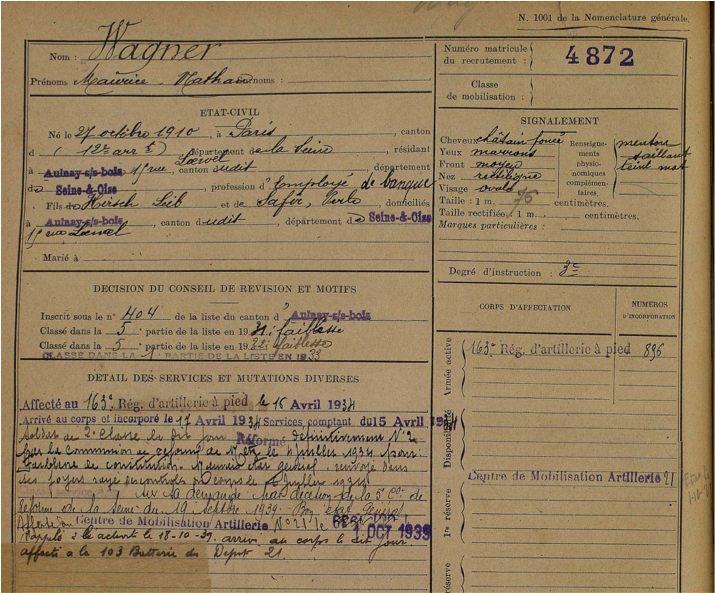 N. 1001 de la Nomenclature générale.
Nom : Wagner
Prénoms Maurice Nathan Surnoms :
ETAT-CIVIL
Né le 27 octobre 1910, à Paris, canton
d (12e arrt), département de la Seine, résidant
à Aulnay-s/s-bois 15 rue Loewel, canton dudit, département
de Seine-&-Oise, profession d'Employé de banque
Fils de Hirsch Leib et de Safir, domiciliés
à Aulnay-s/s-bois, canton dudit, département de Seine-&-Oise
15 rue Loewel
Marié à
DECISION DU CONSEIL DE REVISION ET MOTIFS
Inscrit sous le n° 404 de la liste du canton d' Aulnay-s/s-bois
Classé dans la 5 e partie de la liste en 1931 : faiblesse
Classé dans la 5 e partie de la liste en 1932 : faiblesse
CLASSÉ DANS LA 1 PARTIE DE LA LISTE EN 1933
DÉTAIL DES SERVICES ET MUTATIONS DIVERSES
Affecté au 163e Rég. d'artillerie à pied le 16 Avril 1934
Arrivé au corps et incorporé le 17 Avril 1934 Services comptant du 15 Avril 1934
Soldat de 2e Classe le dit jour Réformé définitivement N° 2
par la Commission de réforme de Metz le 4 juillet 1934 pour
faiblesse de constitution. Mauvais état général, renvoyé dans
ses foyers rayé des contrôles du corps le juillet 1934
sur sa demande par décision de la 5e Con de
réforme de la Seine du 19 Septembre 1939. Bon état Général
Affecté au Centre de Mobilisation Artillerie N° 21 le 1 OCT 1939
Rappelé à l'activité le 18-10-39. arrivé au corps le dit jour
affecté à la 103 Batterie du Dépôt 21.
Numéro matricule du recrutement : 4872
Classe de mobilisation :
SIGNALEMENT
Cheveux châtain foncé
Yeux marrons
Front moyen
Nez rectiligne
Visage ovale
Renseignements physionomiques complémentaires.
menton saillant
teint mat
Taille : 1 m. 76 centimètres.
Taille rectifiée : 1 m. centimètres.
Marques particulières :
Degré d'instruction : 3e
CORPS D'AFFECTATION
NUMEROS D'INCORPORATION
Armée active
163e Rég. d'artillerie à pied 896
Disponibilité
Centre de Mobilisation Artillerie 21
1re réserve
réserve